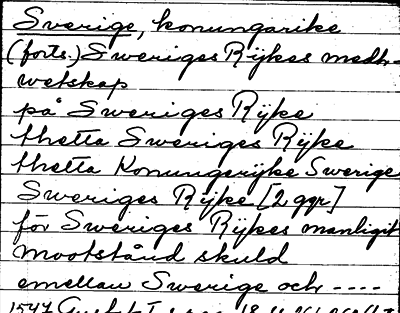 Sverige, konungarike
(forts.) Sweriges Rijkes medh-
wetskap
på Sweriges Rijke
thetta Sweriges Rijke
thetta Konungerijke Swerige
Sweriges Rijke [2 ggr]
för Sweriges Rijkes manligit
mootstånd skuld
emellan Swerige och ----
1547 Gustaf I